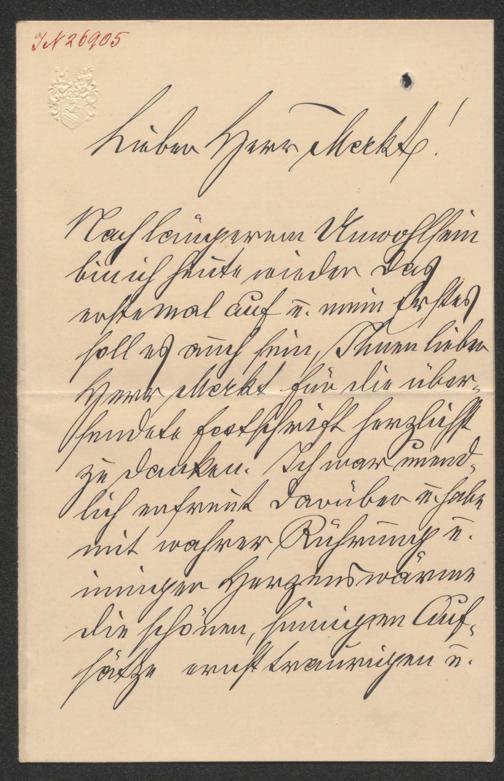 IN 26905
Lieber Herr Merkt!
Nach längerem Unwohlsein
bin ich heute wieder das
erstemal auf u. mein Erstes
soll es auch sein, Ihnen lieber
Herr Merkt für die über-
sendete Festschrift herzlichst
zu danken. Ich war unend-
lich erfreut darüber u. habe
mit wahrer Rührung u.
inniger Herzenswärme
die schönen, sinnigen Auf-
sätze ernst traurigen u.